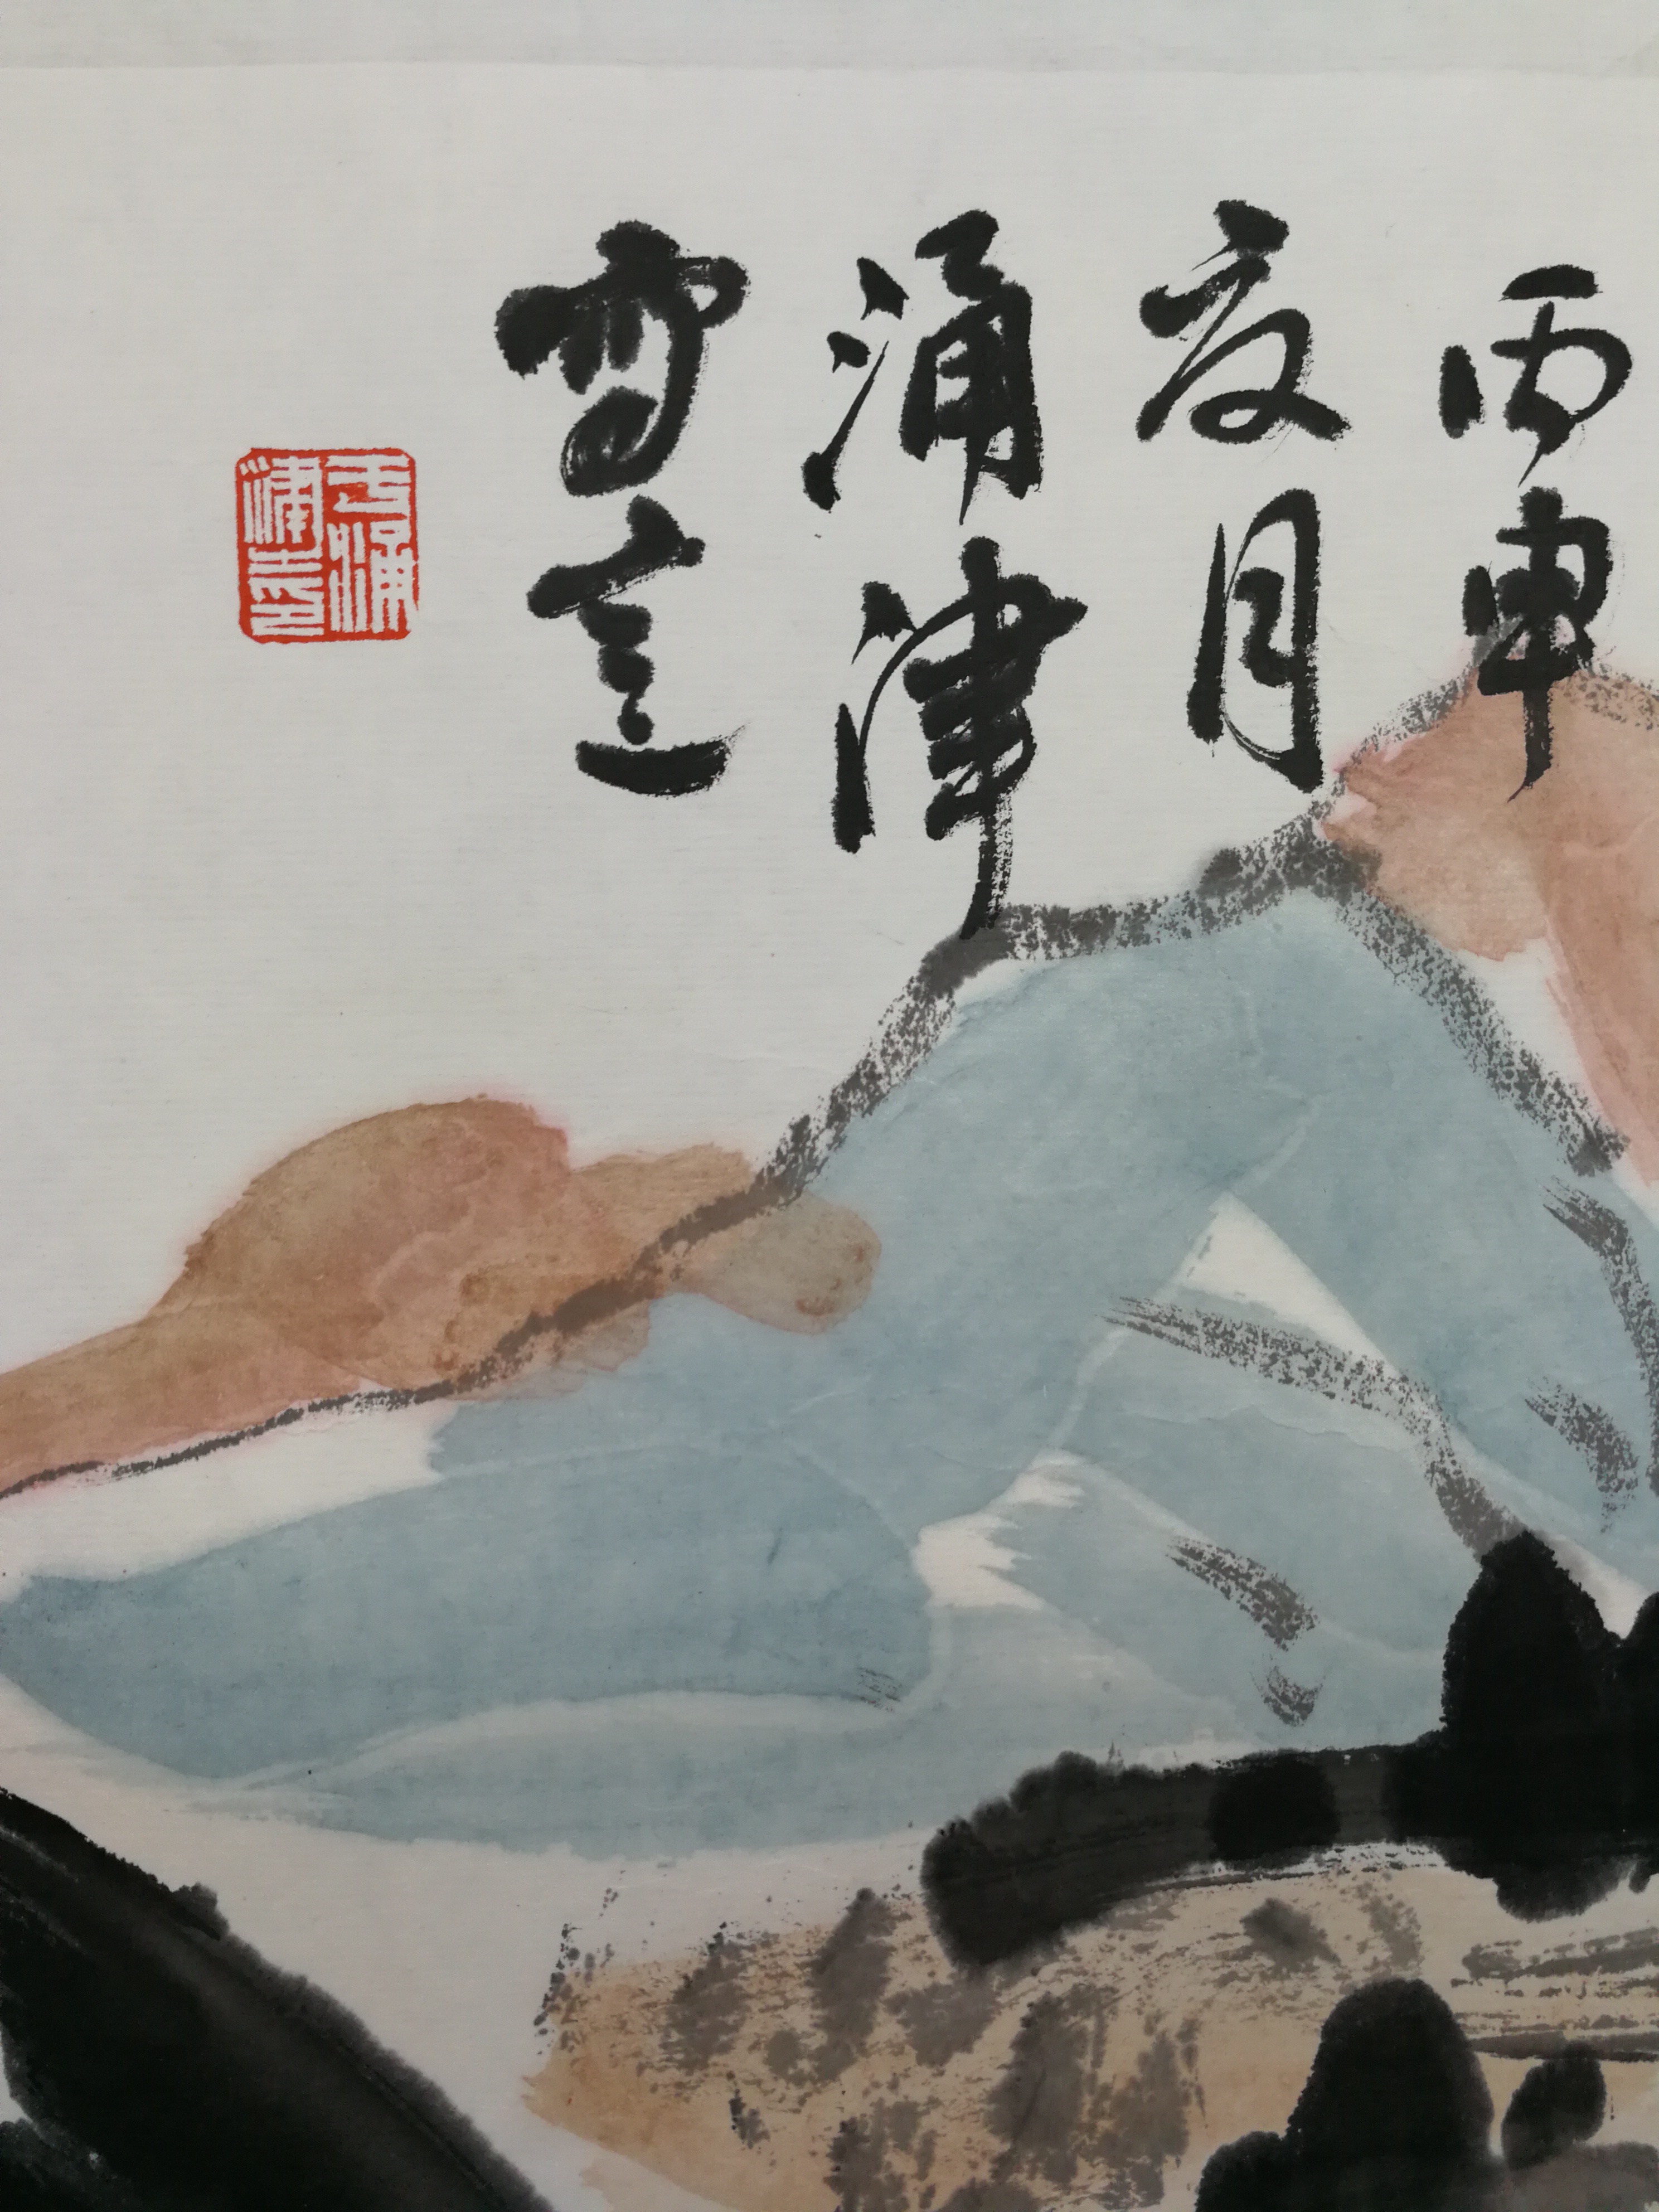 丙申
夏月
涌津
涌
津之印